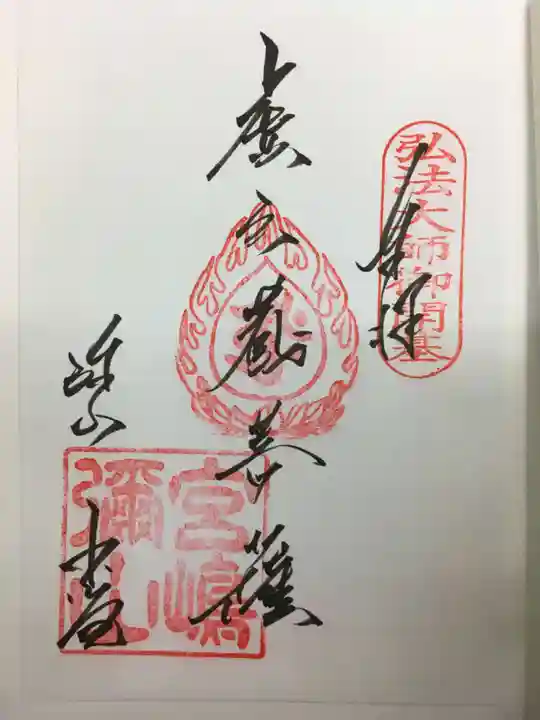 弘法大師御開基
奉拝
虚空蔵菩薩
宮嶋
彌山
弥山
本堂